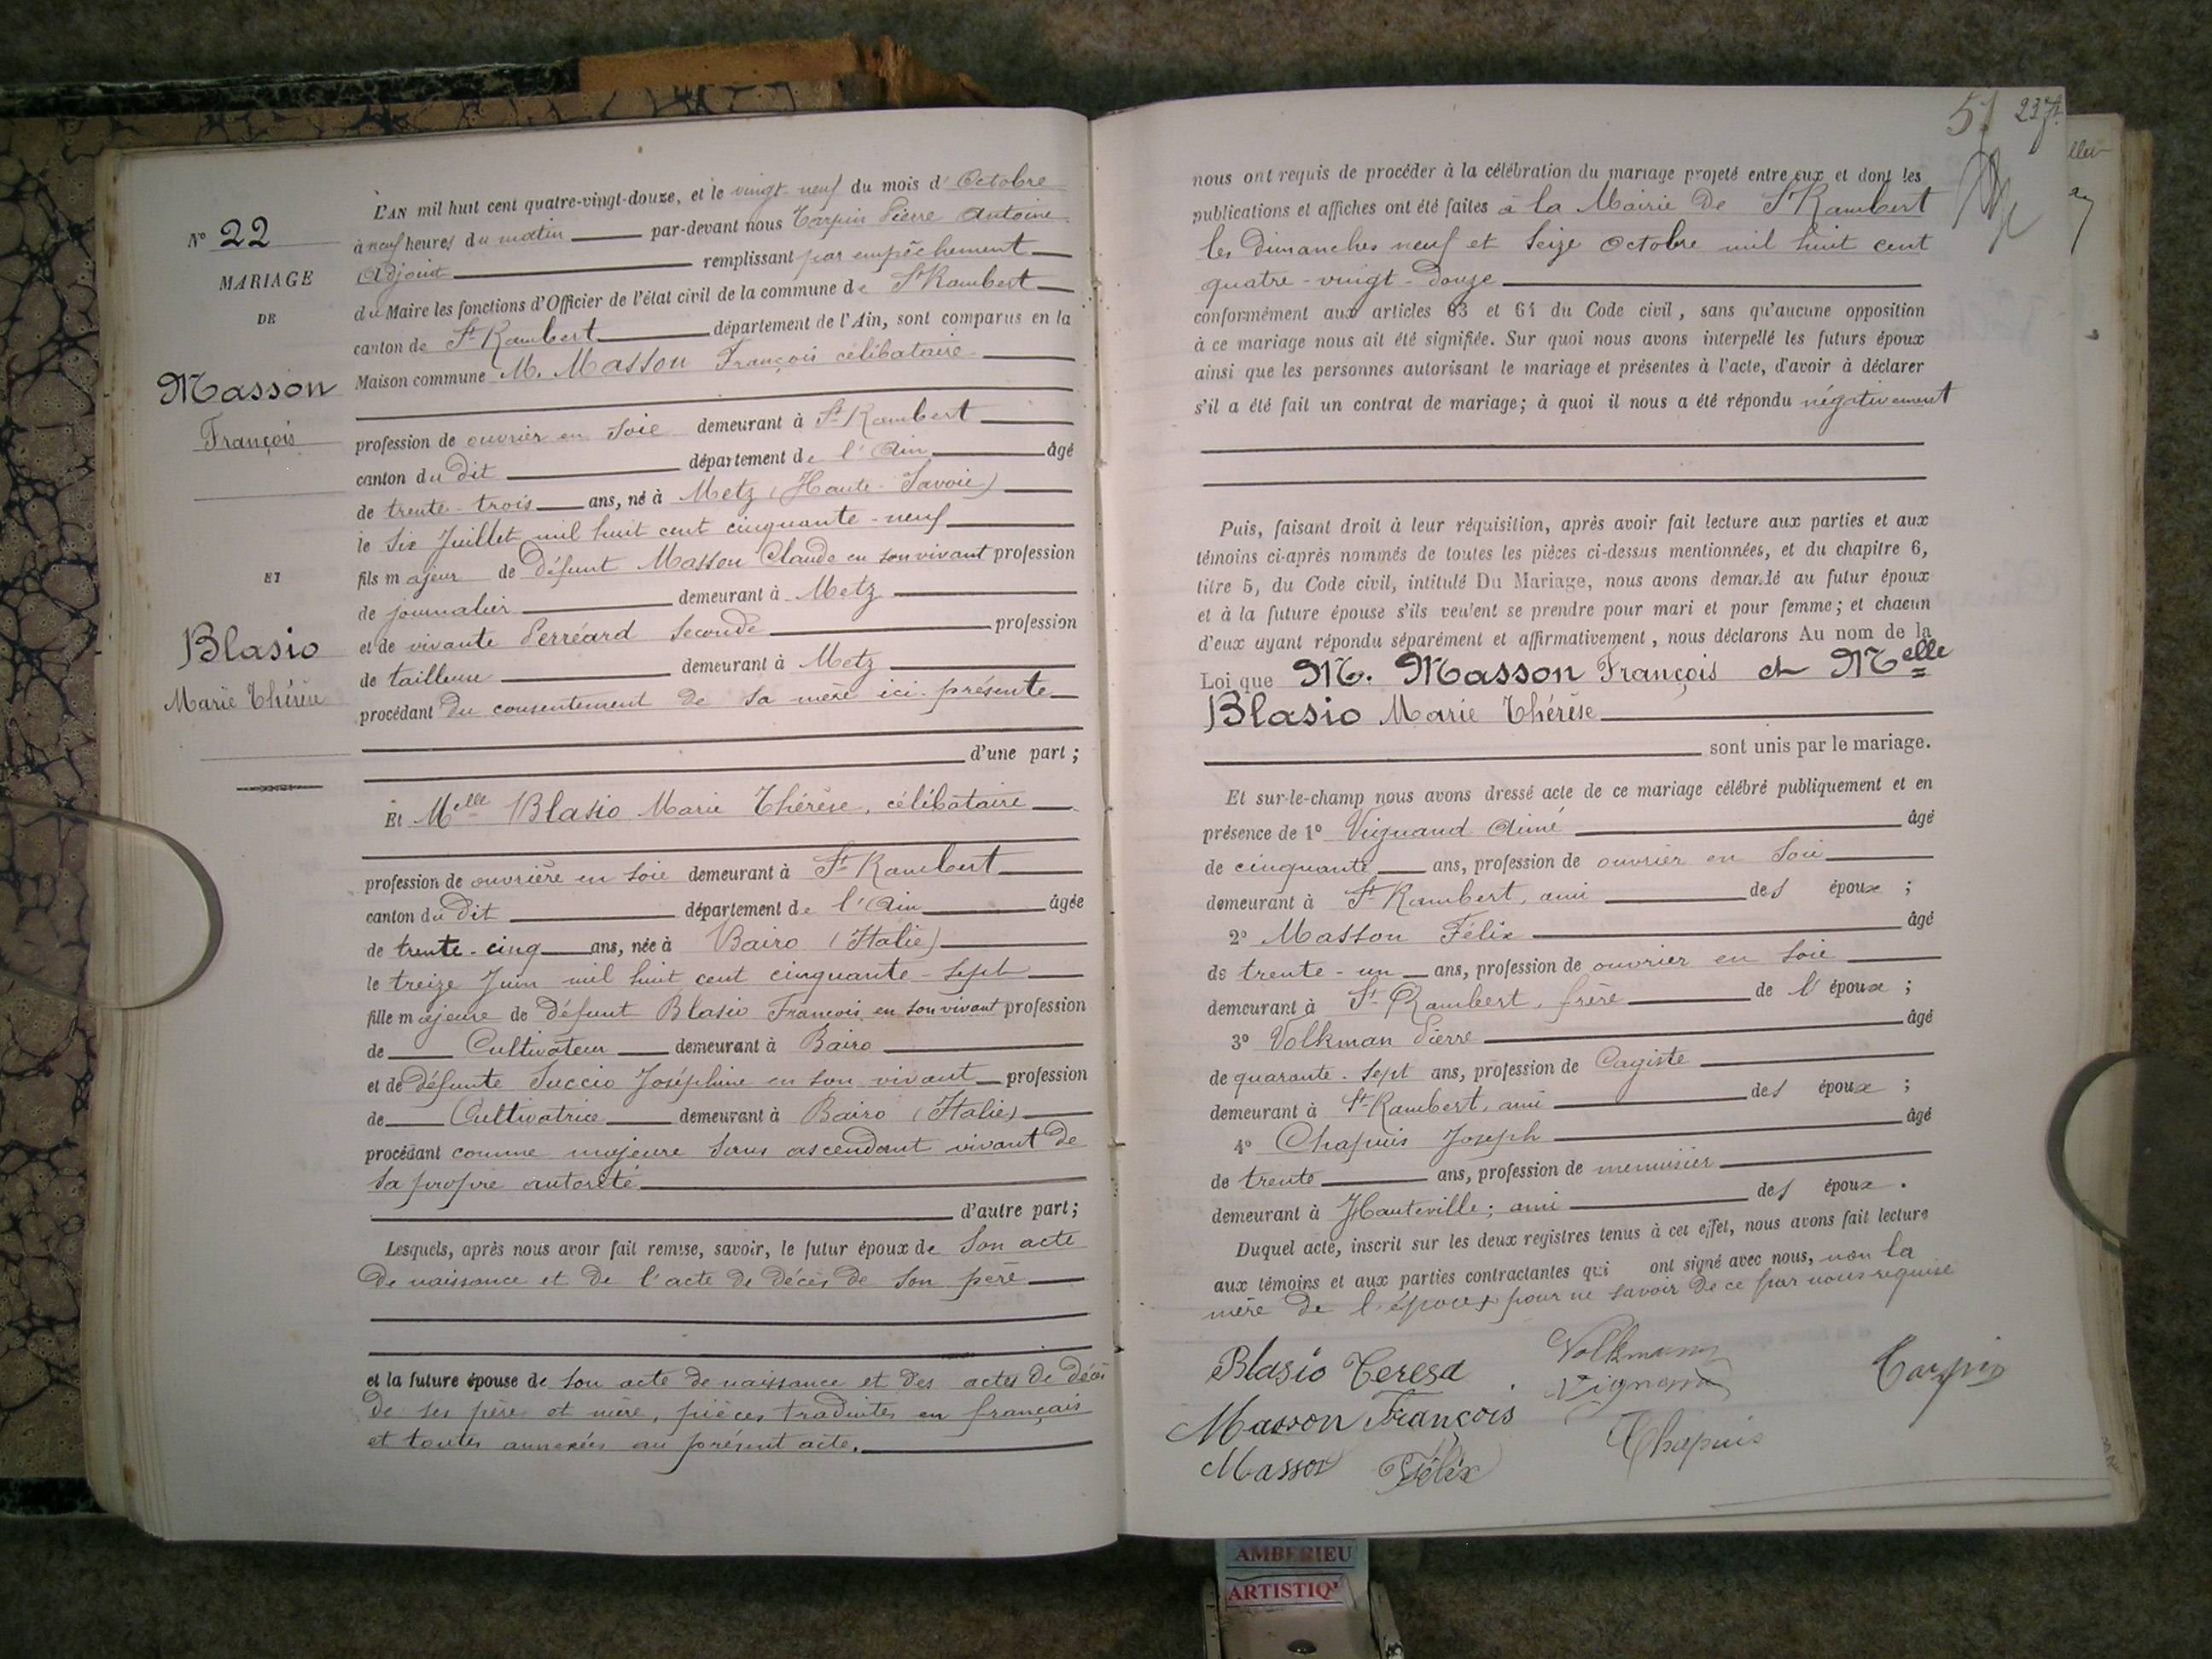 N° 22
MARIAGE
DE
Masson
François
ET
Blasio
Marie Thérèse
L'AN mil huit cent quatre-vingt-douze, et le vingt-neuf du mois d'Octobre
à neuf heures du matin par-devant nous Tarpin Pierre Antoine
Adjoint remplissant par empêchement
du Maire les fonctions d'Officier de l'état civil de la commune de St Rambert
canton de St Rambert département de l'Ain, sont comparus en la
Maison commune M. Masson François célibataire
profession de ouvrier en soie demeurant à St Rambert
canton du dit département de l'Ain âgé
de trente-trois ans, né à Metz (Haute-Savoie)
le six Juillet mil huit cent cinquante-neuf
fils majeur de défunt Masson Claude en son vivant profession
de journalier demeurant à Metz
et de vivante Perréard Seconde profession
de tailleuse demeurant à Metz
procédant du consentement de sa mère ici présente
d'une part;
Et Melle Blasio Marie Thérèse, célibataire
profession de ouvrière en soie demeurant à St Rambert
canton du dit département de l'Ain âgée
de trente-cinq ans, née à Bairo (Italie)
le treize Juin mil huit cent cinquante-sept
fille majeure de défunt Blasio François en son vivant profession
de Cultivateur demeurant à Bairo
et de défunte Succio Joséphine en son vivant profession
de Cultivatrice demeurant à Bairo (Italie)
procédant comme majeure sans ascendant vivant de
sa propre autorité
d'autre part;
Lesquels, après nous avoir fait remise, savoir, le futur époux de son acte
de naissance et de l'acte de décès de son père
et la future épouse de son acte de naissance et des actes de décès
de ses père et mère, pièces traduites en français
et toutes annexées au présent acte.
51 237
nous ont requis de procéder à la célébration du mariage projeté entre eux et dont les
publications et affiches ont été faites à la Mairie de St Rambert
les dimanches neuf et seize octobre mil huit cent
quatre-vingt-douze
conformément aux articles 63 et 64 du Code civil, sans qu'aucune opposition
à ce mariage nous ait été signifiée. Sur quoi nous avons interpellé les futurs époux
ainsi que les personnes autorisant le mariage et présentes à l'acte, d'avoir à déclarer
s'il a été fait un contrat de mariage; à quoi il nous a été répondu négativement
Puis, faisant droit à leur réquisition, après avoir fait lecture aux parties et aux
témoins ci-après nommés de toutes les pièces ci-dessus mentionnées, et du chapitre 6,
titre 5, du Code civil, intitulé Du Mariage, nous avons demandé au futur époux
et à la future épouse s'ils veulent se prendre pour mari et pour femme; et chacun
d'eux ayant répondu séparément et affirmativement, nous déclarons Au nom de la
Loi que M. Masson François et Melle
Blasio Marie Thérèse
sont unis par le mariage.
Et sur-le-champ nous avons dressé acte de ce mariage célébré publiquement et en
présence de 1° Vignand Aimé âgé
de cinquante ans, profession de ouvrier en soie
demeurant à St Rambert, ami des époux;
2° Masson Félix âgé
de trente-un ans, profession de ouvrier en soie
demeurant à St Rambert, frère de l'époux;
3° Volkman Pierre âgé
de quarante-sept ans, profession de Cagiste
demeurant à St Rambert, ami des époux;
4° Chapuis Joseph âgé
de trente ans, profession de menuisier
demeurant à Hauteville; ami des époux.
Duquel acte, inscrit sur les deux registres tenus à cet effet, nous avons fait lecture
aux témoins et aux parties contractantes qui ont signé avec nous, non la
mère de l'époux pour ne savoir de ce par nous requise
Blasio Teresa Volkmann Tarpin
Masson François Vignand
Masson Félix Chapuis
AMBERIEU
ARTISTIQ